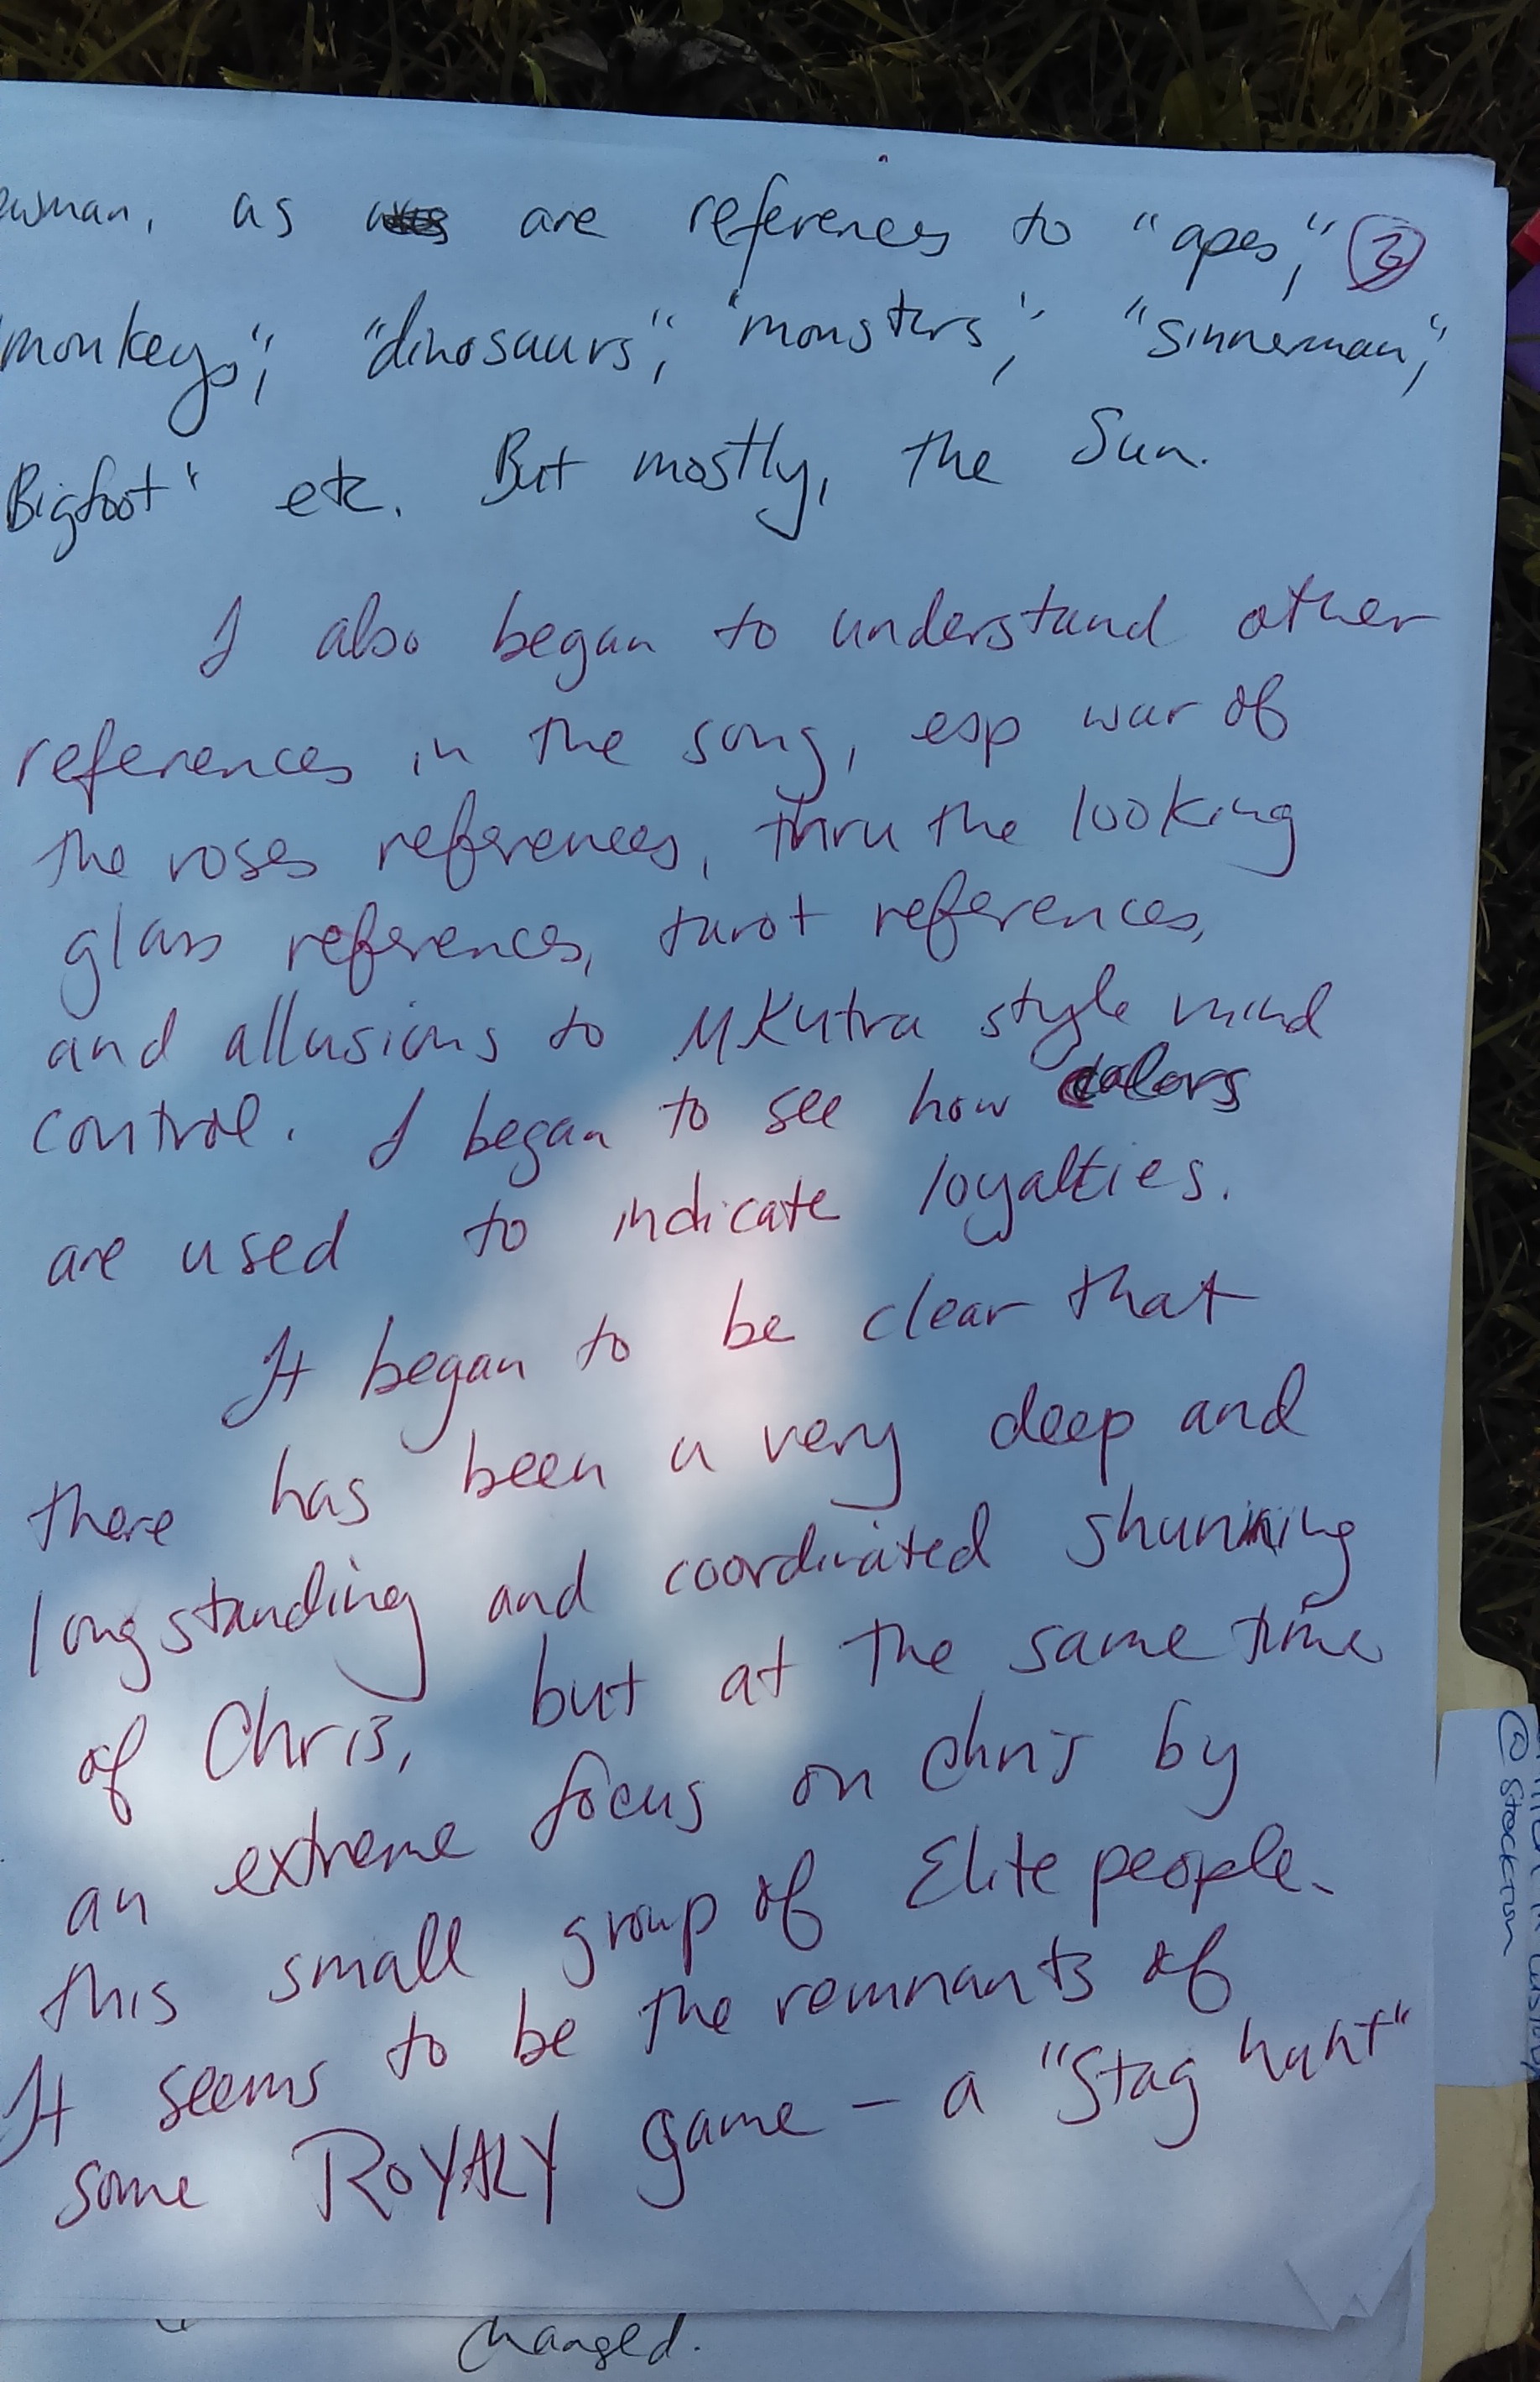 ewman, as are references to "apes," ②
monkeys", "dinosaurs", "monsters," "Sinnerman,"
Bigfoot" etc. But mostly, the Sun.
I also began to understand other
references in the song, esp war of
the roses references, thru the looking
glass references, tarot references,
and allusions to MKUtra style mind
control. I began to see how colors
are used to indicate loyalties.
It began to be clear that
there has been a very deep and
longstanding and coordinated shunning
of Chris, but at the same time
an extreme focus on Chris by
this small group of Elite people.
It seems to be the remnants of
some ROYALY game - a "Stag hunt"
changed.